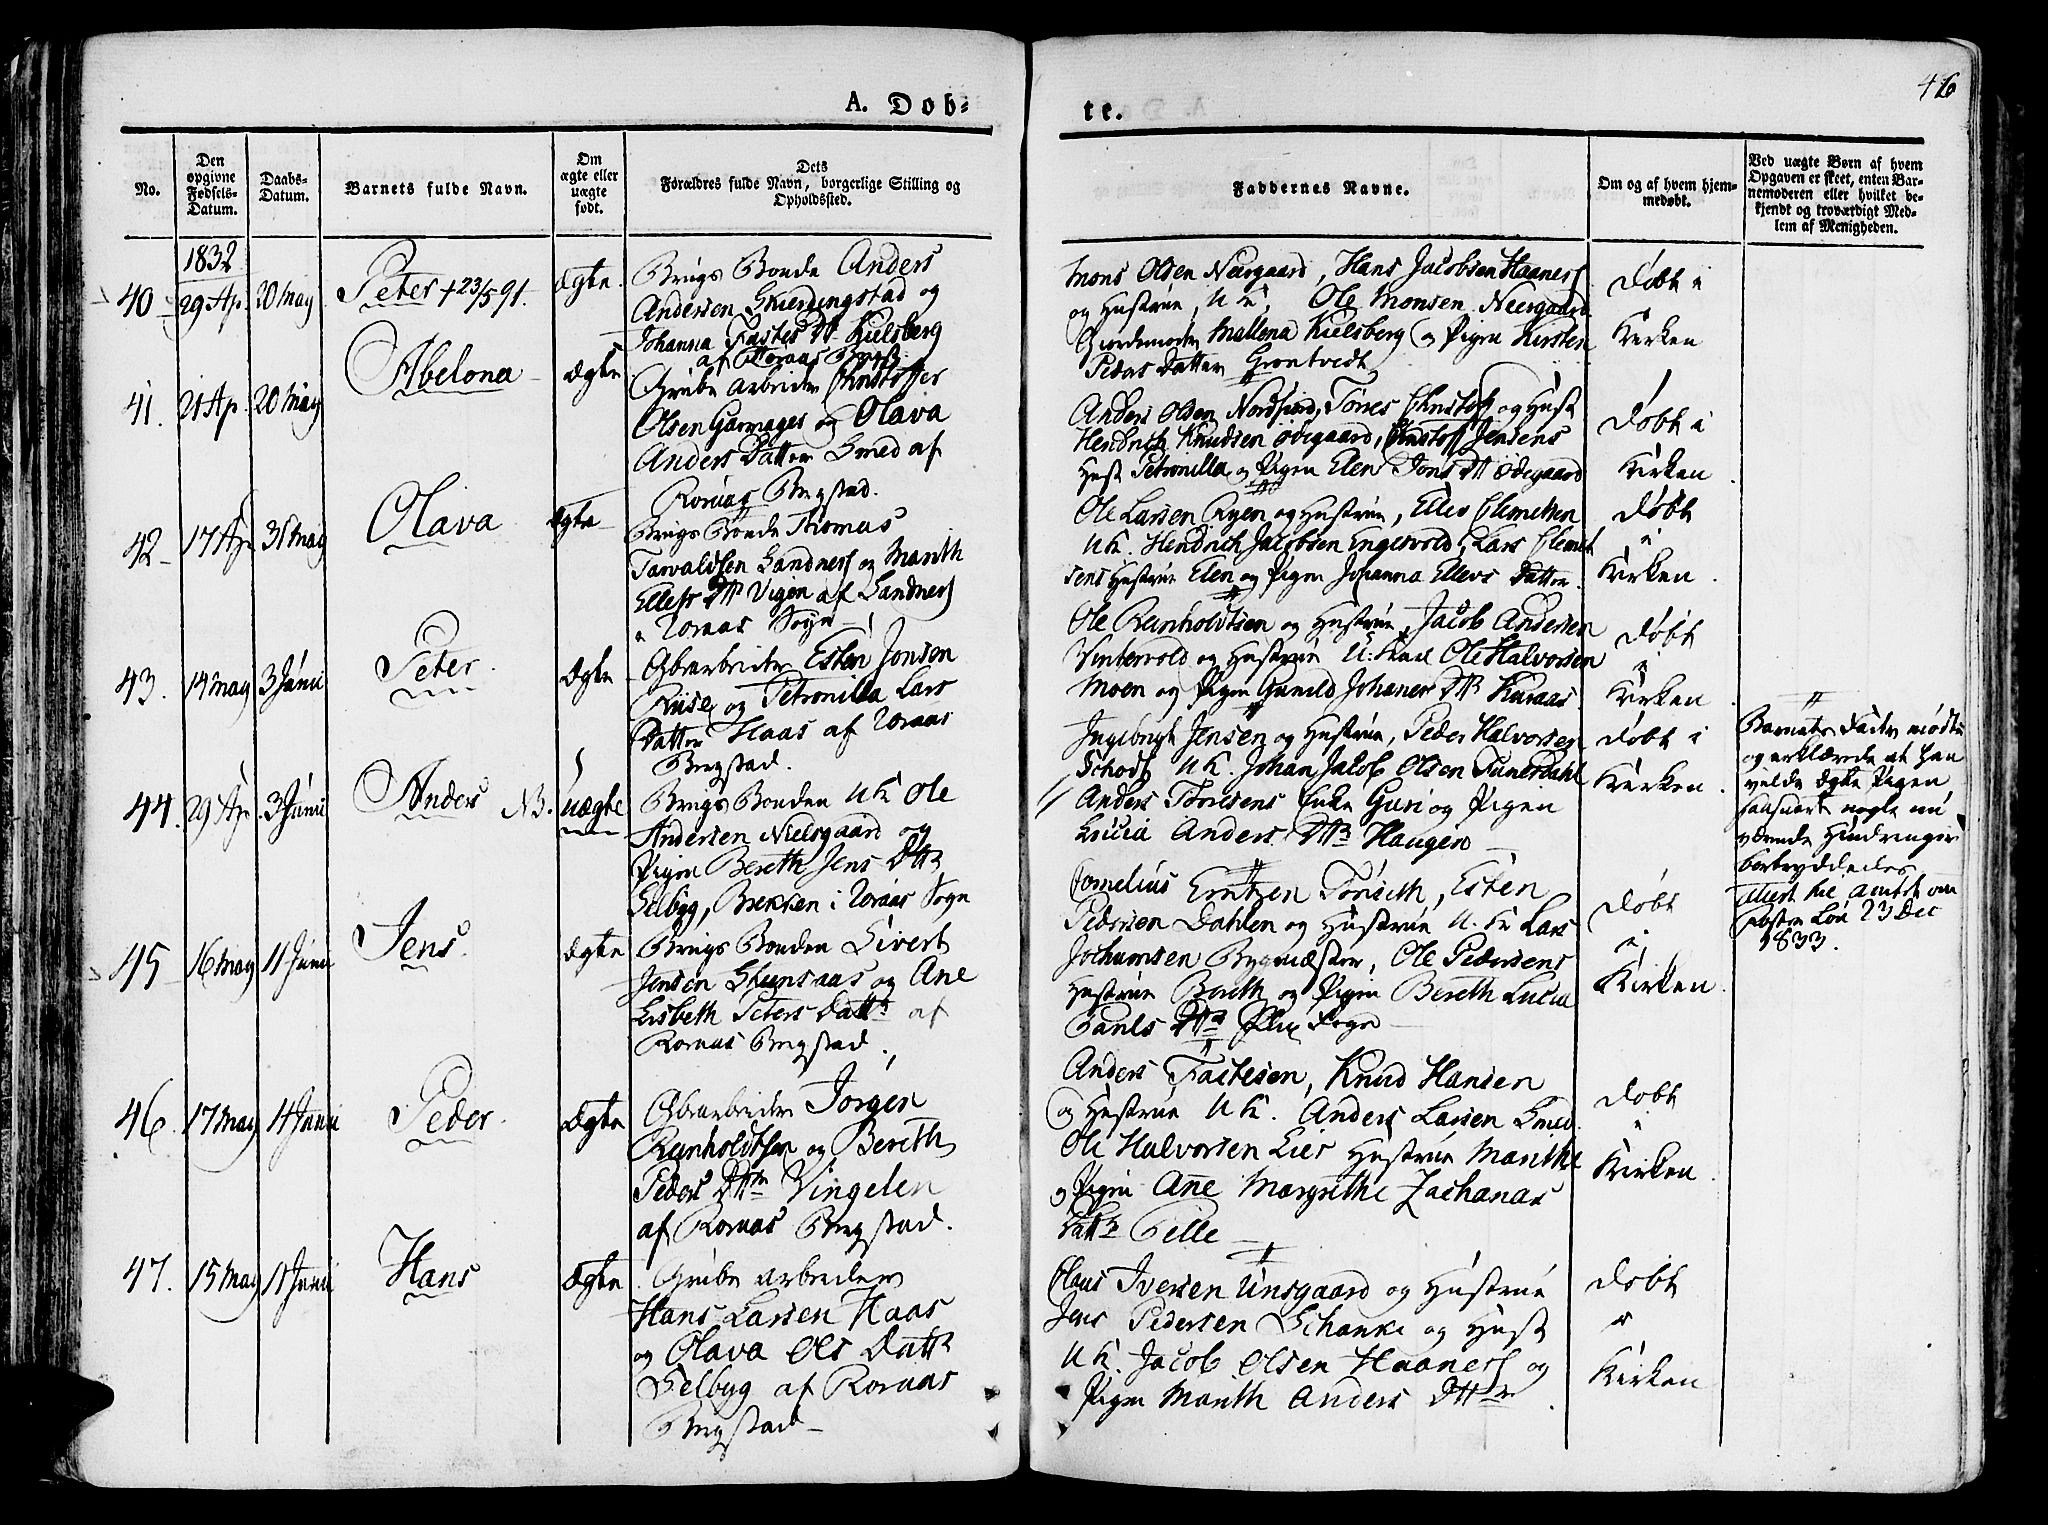 A. Døb-
te.
46
No.
Den opgivne Fødsels-Datum.
Daabs-Datum.
Barnets fulde Navn.
Om ægte eller uægte født.
Dets Forældres fulde Navn, borgerlige Stilling og Opholdssted.
Faddernes Navne.
Om og af hvem hjemmedøbt.
Ved uægte Børn af hvem Opgaven er skeet, enten Barnemoderen eller hvilket bekjendt og troværdigt Medlem af Menigheden.
1832
40 29 Ap. 20 May Peter +23/5 91. Ægte.
Brugs Bonde Anders
Andersen Skierdingstad og
Johanna Fastes Dtr Kielsberg
af Röraas Bergst.
Mons Olsen Neergaard, Hans Jacobsen Haanes
og Hustrue, U K, Ole Monsen Neergaard
Giordemoder Mallena Kielsberg og Pigen Kirsten
Peders Datter Grøntvedt
Døbt i
Kirken
41. 21 Ap. 20 May Abelona Ægte
Grube Arbeider Christoffer
Olsen Garmager og Olava
Anders Datter Smed af
Roraas Bergstad.
Anders Olsen Nordfiord, Torres Christoff og Hust
Hendrich Knudsen Ødegaard, Christoff Jensens
Hust Petronilla og Pigen Elen Jons Dtr Ødegaard
Døbt i
Kirken
42 17 Ap 31 May Olava Ægte
Brugs Bonde Thomas
Tarvaldsen Sandnes og Marith
Ellefs Dtr Vigen af Sandnes
i Roraas Sogn
Ole Larsen Ryen og Hustrue, Ellev Clemetsen
U K. Hendrich Jacobsen Engesvold, Lars Clemet
sens Hustrue Elen og Pigen Johanna Ellevs Datter.
Døbt
i
Kirken.
43. 14 May 3 Junii Peter. Ægte
Gbrarbeider Esten Jonsen
Ruse og Petronilla Lars
Datter Haas af Roraas
Bergstad.
Ole Reinholdtsen og Hustrue, Jacob Andersen
Vintervold og Hustrue U: Karl Ole Halvorsen
Moen og Pigen Gunild Johannes Dtr Kuraas
Døbt
i
Kirken
44. 29 Ap. 3 Junii Anders NB. uægte
Brugs Bonden U K Ole
Andersen Nielsgaard og
Pigen Bereth Jens Dtr
Selbyg, Brekken i Roraas Sogn
Ingebrigt Jensen og Hustrue, Peder Halvorsen
Schott U K. Johan Jacob Olsen Tamesdahl
Anders Thorisens Enke Guri og Pigen
Lucia Anders Dtr Haugen
Døbt i
Kirken.
Barnets Fader mødte
og erklærede at han
vilde ægte Pigen
saasnart nogle nu
værende Hindringer
bortryddedes
23 Dec
1833.
45 16 May 11 Junii Jens. Ægte
Brugs Bonden Sivert
Jensen Stensaas og Ane
Lisbeth Peters Dattr af
Roraas Bergstad.
Cornelius Erntzen Tonseth, Esten
Pedersen Dahlen og Hustrue U. K Lars
Jochumsen Bygmester, Ole Pedersens
Hustrue Bereth og Pigen Bereth Lucia
Carls Dtr
Døbt
i
Kirken
46. 17 May 11 Junii Peder. Ægte
Gbrarbeider Jörgen
Reinholdtsen og Bereth
Peders Dtr Vingelen
af Roraas Bergstad.
Anders Fastesen, Knud Hansen
og Hustrue U K. Anders Larsen Smed.
Ole Halvorsen Lies Hustrue Marithe
og Pigen Ane Margrethe Zacharias
Dattr Gelle
Døbt
i
Kirken
47. 15 May 11 Junii Hans Ægte
Grube Arbeider
Hans Larsen Haas
og Olava Ols Dattr
Selbyg af Roraas
Bergstad
Claus Iversen Unsgaard og Hustrue
Jens Pedersen Schanke og Hust
U K. Jacob Olsen Haanes og
Pigen Marith Anders Dtr
Døbt
i
Kirken